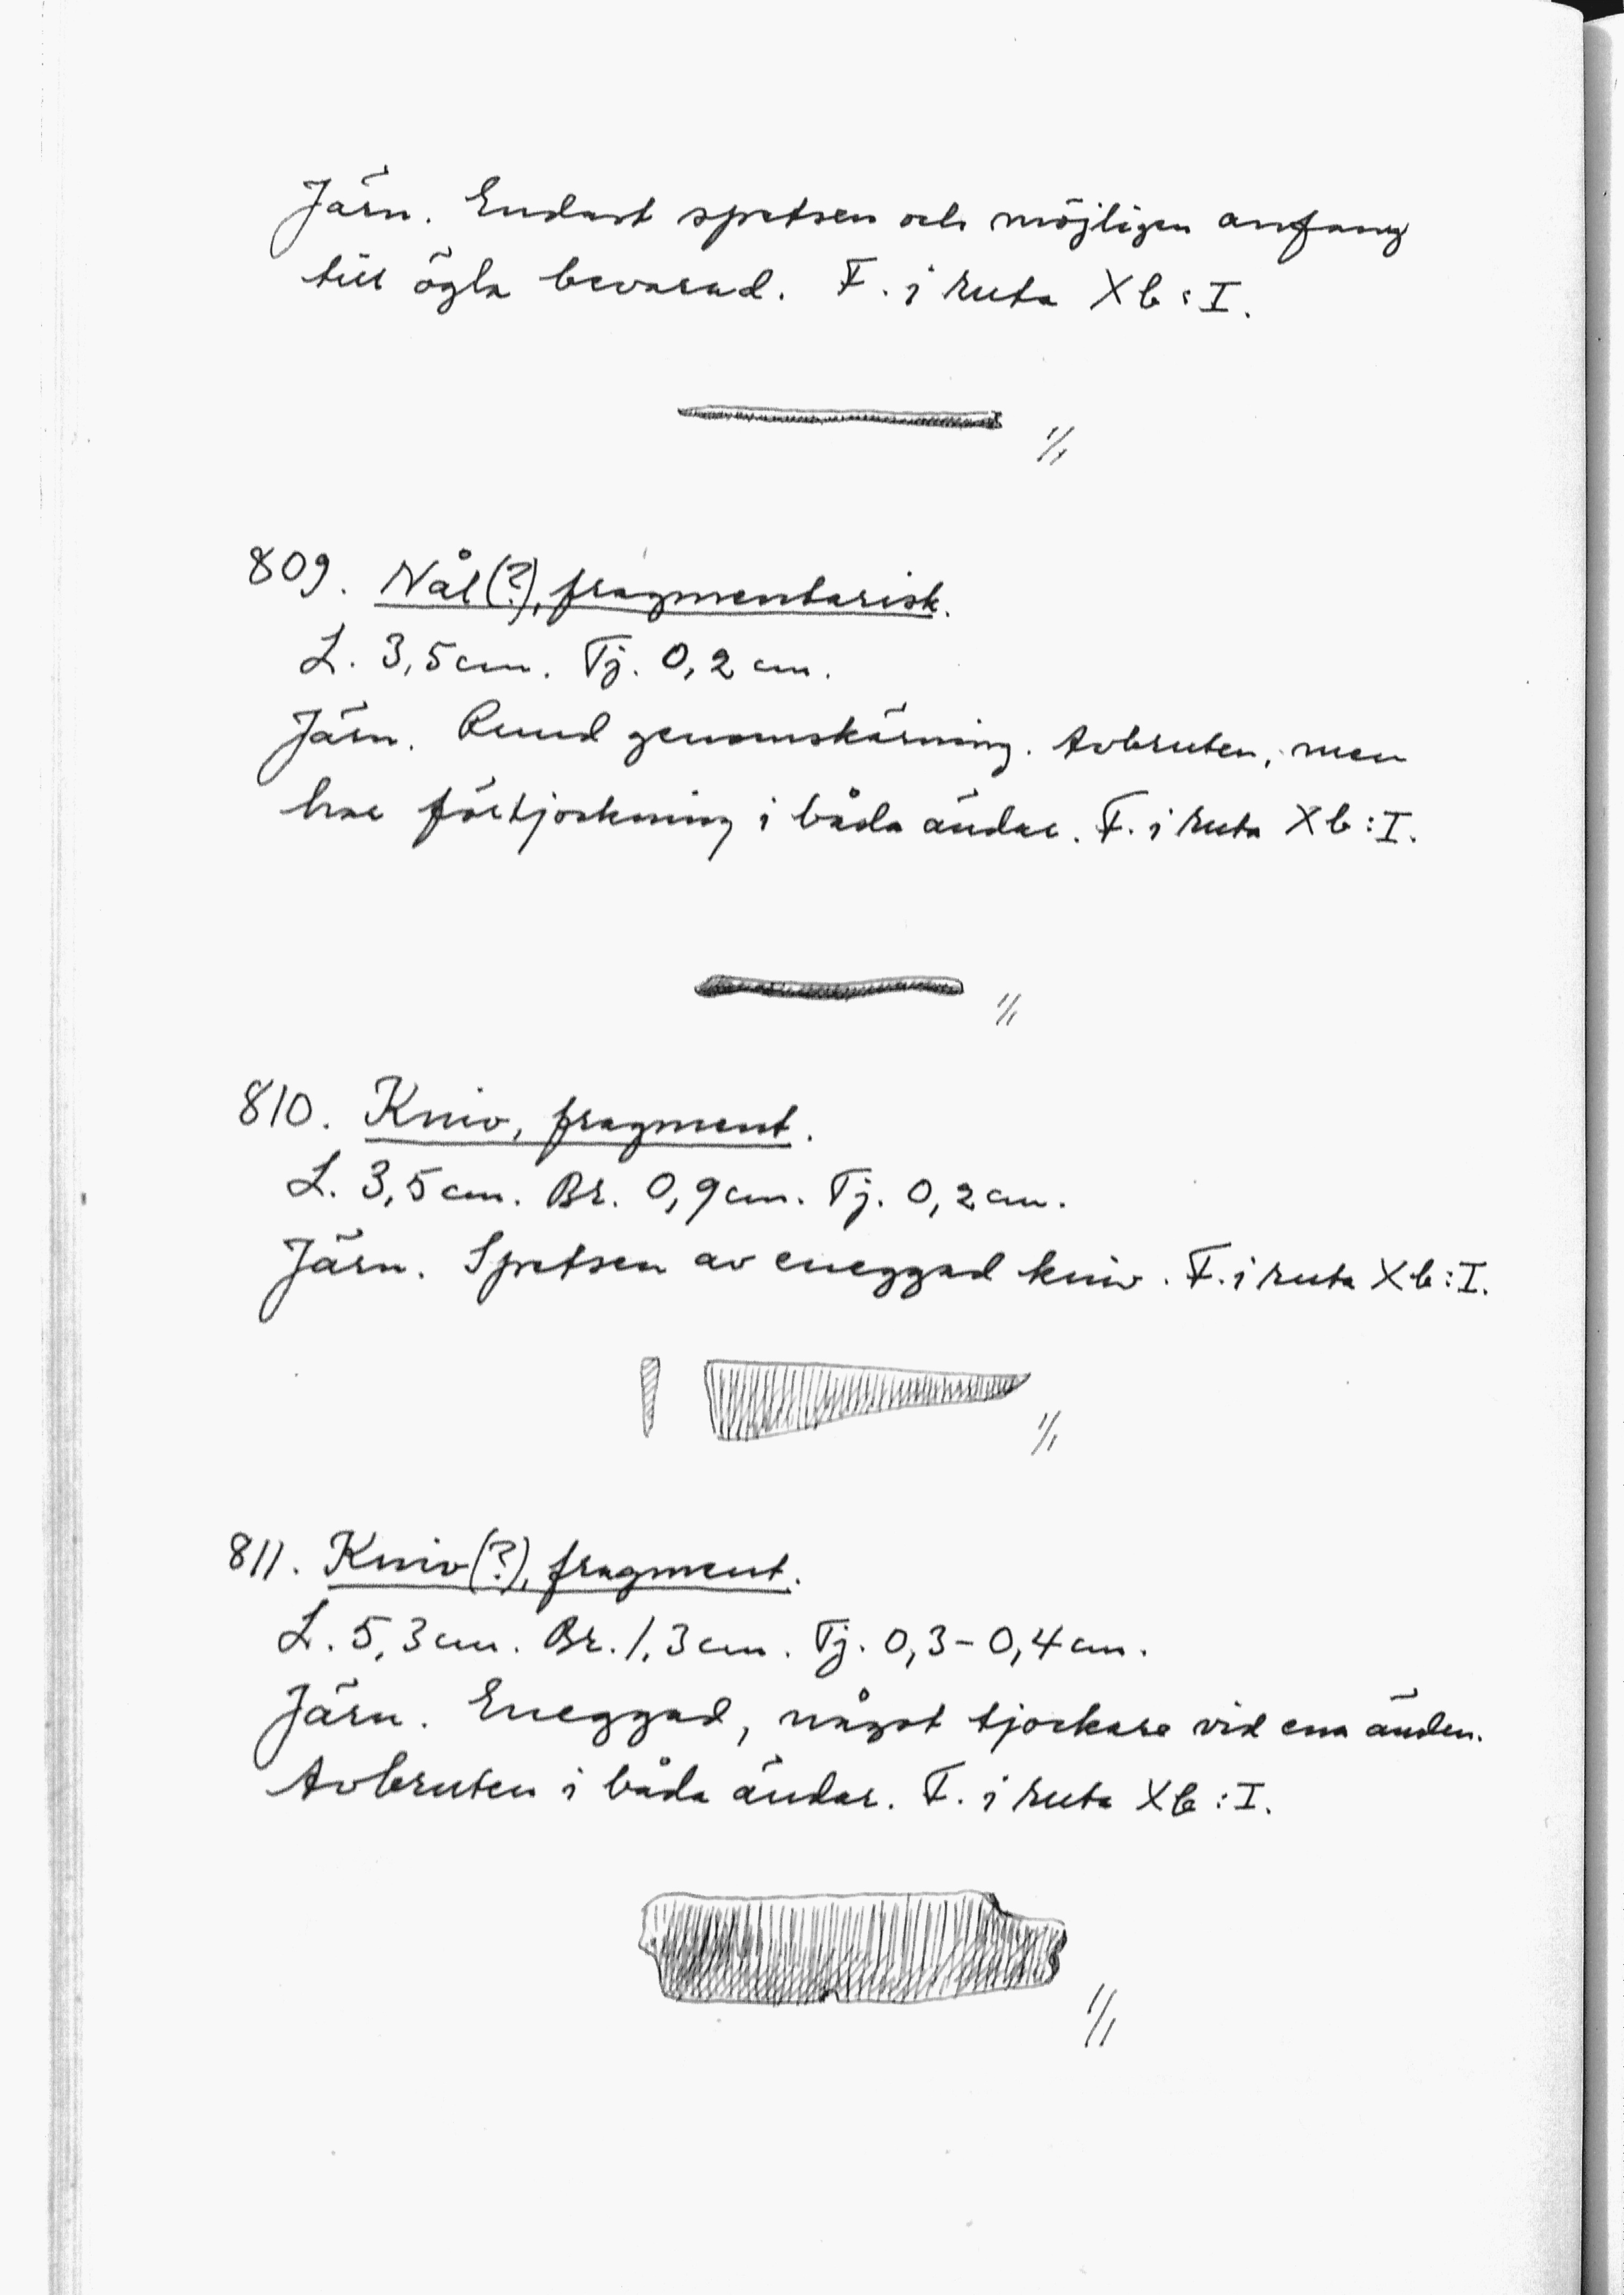 Järn. Endast spetsen och möjligen anfang
till ögla bevarad. F. i ruta Xb:I.
1/1
809. Nål(?), fragmentarisk.
L. 3,5 cm. Tj. 0,2 cm.
Järn. Rund genomskärning. Avbruten, men
har förtjockning i båda ändar. F. i ruta Xb:I.
1/1
810. Kniv, fragment.
L. 3,5 cm. Br. 0,9 cm. Tj. 0,2 cm.
Järn. Spetsen av eneggad kniv. F. i ruta Xb:I.
1/1
811. Kniv(?), fragment.
L. 5,3 cm. Br. 1,3 cm. Tj. 0,3-0,4 cm.
Järn. Eneggad, något tjockare vid ena änden.
Avbruten i båda ändar. F. i ruta Xb:I.
1/1